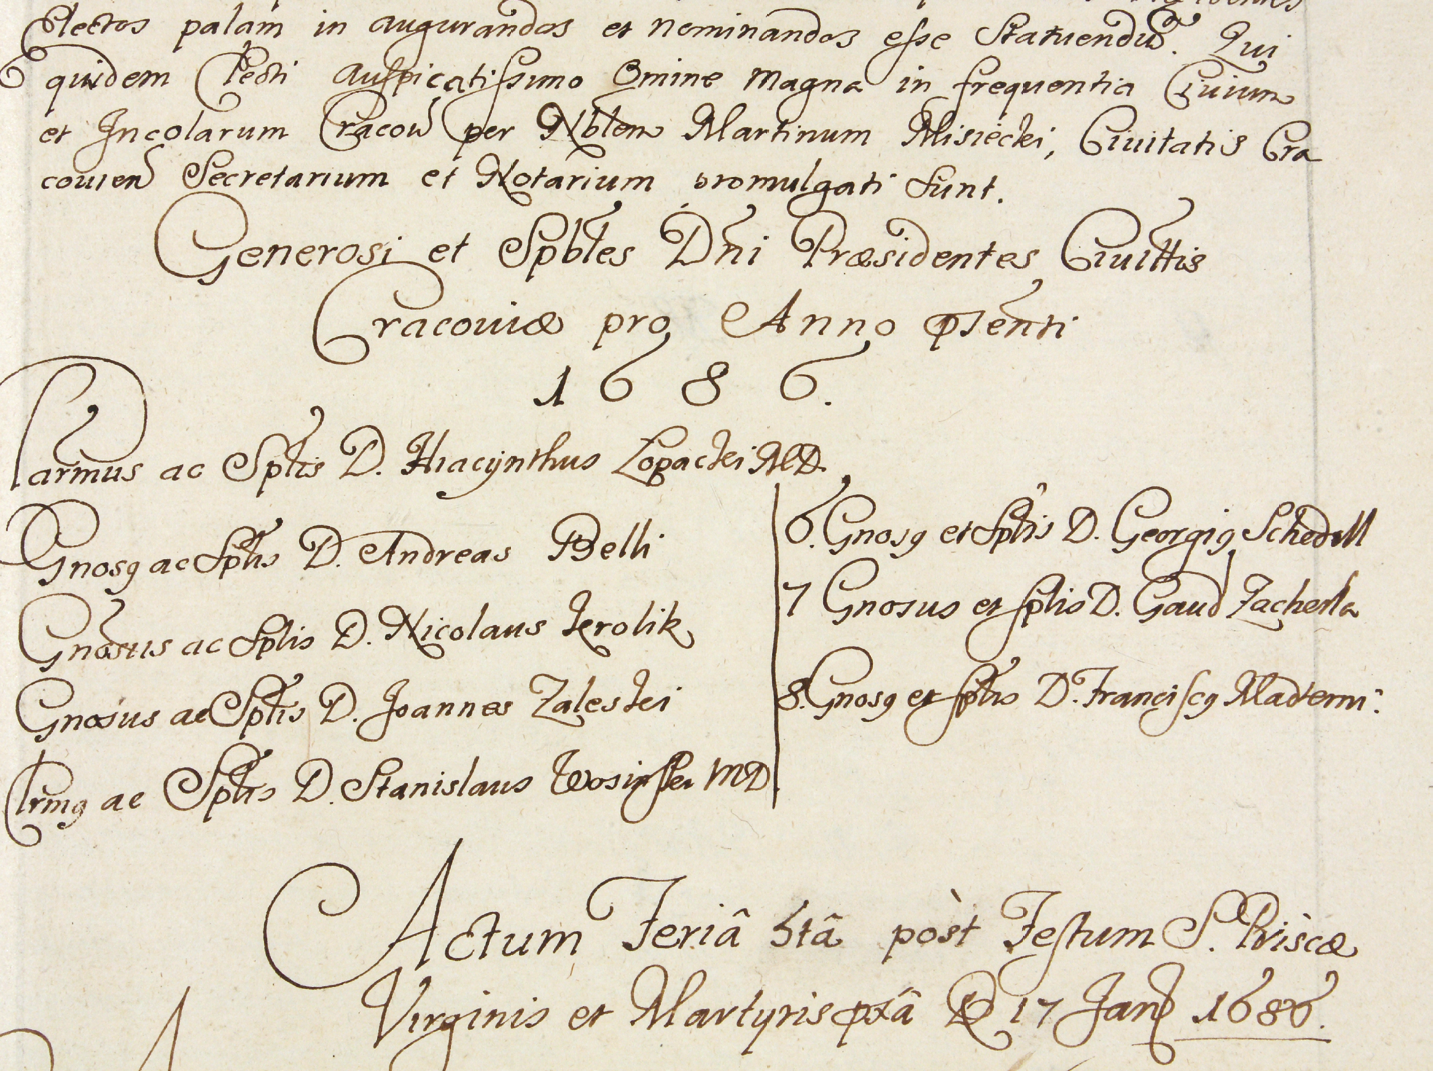 Electos palam in augurandos et nominandos esse Statuendũ. Qui
quidem Lecti Auspicatissimo Omine Magna in frequentia Ciuium
et Incolarum Cracou per Nblem Martinum Misiecki, Ciuitatis Cra
couien Secretarium et Notarium promulgati sunt.
Generosi et Spbles Dni Præsidentes Ciuittis
Cracouiæ pro Anno pſenti
1686.
Larimus ac Spltis D. Hiacynthus Lopacki MD.
Gnosq ac Spltis D. Andreas Belli
Gnosus ac Spltis D. Nicolaus Krolik
Gnosus ac Spltis D. Joannes Zaleski
Clrmq ac Spltis D. Stanislaus MD
6. Gnosq et Spltis D. Georgiq Schedell
7 Gnosus et spltis D. Gaud Zacherla
8. Gnosq et spltis D. Franciscq Maderni.
Actum Feriâ 5tâ pòst Festum S. Priscæ
Virginis et Martyris pxâ D 17 Jan 1686.